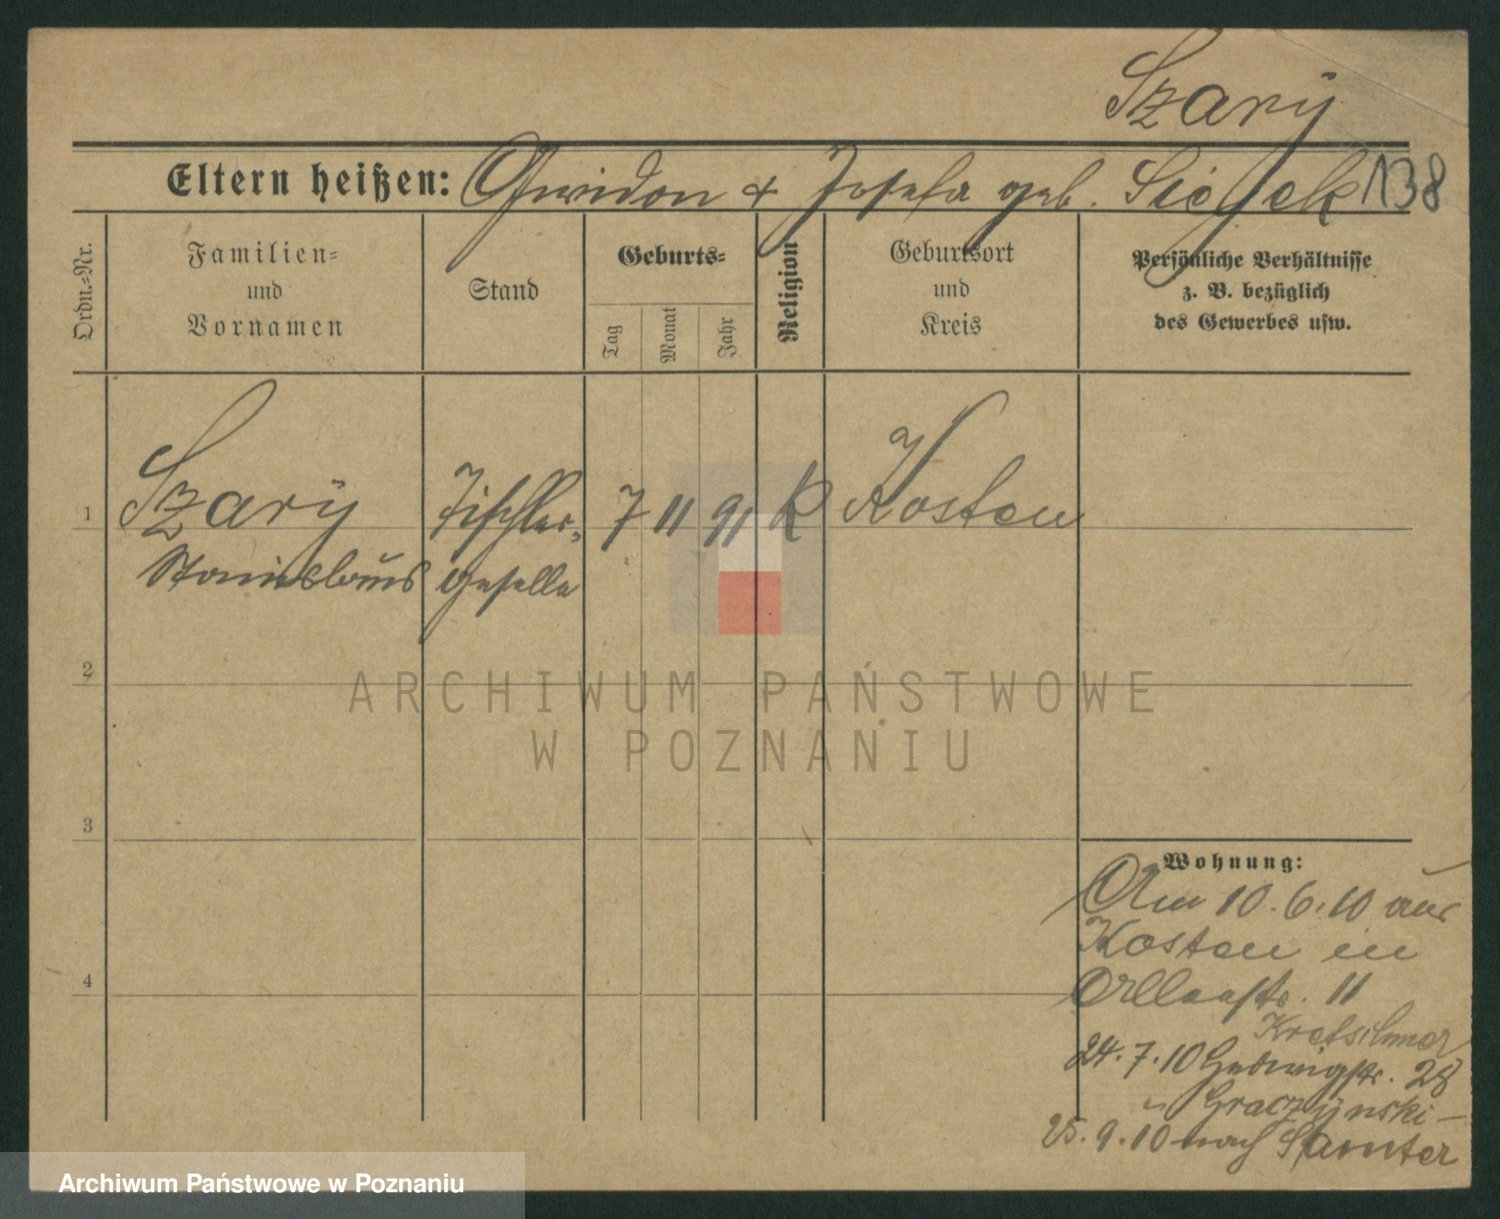 Szarÿ
Eltern heißen: Gwidon + Josefa geb.
138
Ordn.-Nr.
Familien-
und
Vornamen
Stand
Geburts-
Tag
Monat
Jahr
Religion
Geburtsort
und
Kreis
Persönliche Verhältnisse
z. B. bezüglich
des Gewerbes usw.
1
Szarÿ
Stanislaus
Tischler-
geselle
7 11 91
K
Kosten
2
3
4
Wohnung:
Am 10.6.10 aus
Kosten in
11
Kretschmer
24.7.10 Hedwigstr. 28
Graczÿnski
25.9.10 nach Samter
ARCHIWUM PAŃSTWOWE
W POZNANIU
Archiwum Państwowe w Poznaniu